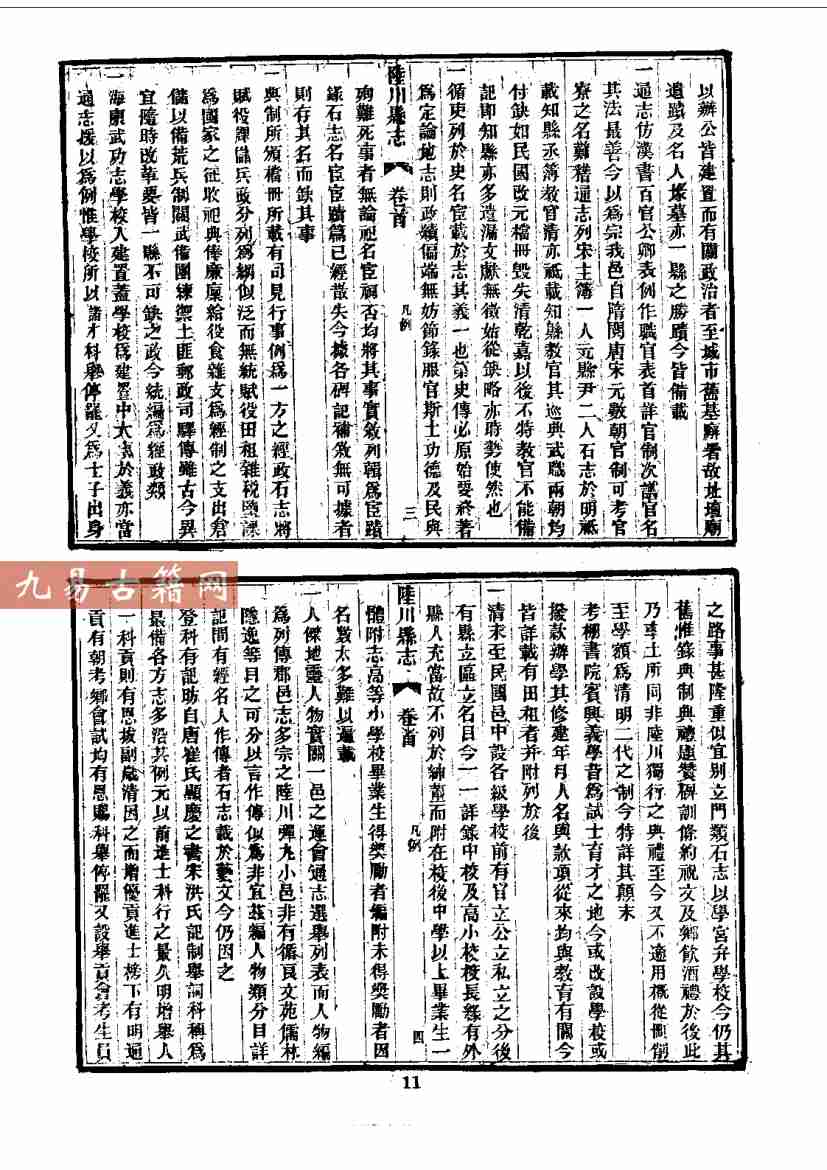 以辦公皆建置而有關政治者至城市舊基廨署故址壇廟
遺蹟及名人塚墓亦一縣之勝蹟今皆備載
一通志仿漢書百官公卿表例作職官表首詳官制次議官名
其法最善今以為宗我邑自隋閱唐宋元數朝官制可考官
寮之名難稽通志列宋主簿一人元縣尹二人石志於明祗
載知縣丞簿教官清亦祗載知縣教官其巡典武職兩朝均
付缺如民國改元檔冊毀失清乾嘉以後不特教官不能備
記即知縣亦多遺漏文獻無徵姑從缺略亦時勢使然也
一循吏列於史名宦載於志其義一也第史傳必原始要終著
為定論地志則政績偏端無妨節錄服官斯土功德及民與
陸川縣志 卷首 凡例 三
殉難死事者無論祀名宦祠否均將其事實敘列輯為宦蹟
錄石志名宦宦蹟篇已經散失今據各碑記補敘無可據者
則存其名而缺其事
一典制所頒檔冊所載有司見行事例為一方之經政石志將
賦役課儲兵政分列為綱似泛而無統賦役田租雜稅鹽課
為國家之征收祀典俸廉廩給役食雜支為經制之支出倉
儲以備荒兵制關武備團練禦土匪郵政司驛傳雖古今異
宜隨時改革要皆一縣不可缺之政今統編為經政類
一海康武功志學校入建置蓋學校為建置中大事於義亦當
通志援以為例惟學校所以儲才科舉停罷又為士子出身
之路事甚隆重似宜別立門類石志以學宮弁學校今仍其
舊惟錄典制典禮連贊碑訓條約祝文及鄉飲酒禮於後此
乃率土所同非陸川獨行之典禮至今又不適用概從刪削
至學額為清明二代之制今特詳其顛末
考棚書院賓興義學皆為試士育才之地今或改設學校或
撥款辦學其修建年月人名與款項從來均與教育有關今
皆詳載有田租者并附列於後
一清末至民國邑中設各級學校前有官立公立私立之分後
有縣立區立名目今一一詳錄中校及高小校校長縣有外
縣人充當故不列於紳董而附在校後中學以上畢業生一
陸川縣志 卷首 凡例 四
體附志高等小學校畢業生得獎勵者編附未得獎勵者因
名數太多難以遍載
一人傑地靈人物實關一邑之運會通志選舉列表而人物編
為列傳郡邑志多宗之陸川彈丸小邑非有循良文苑儒林
隱逸等目之可分以言作傳似為非宜茲編人物類分目詳
記間有經名人作傳者石志載於藝文今仍因之
登科有記昉自唐崔氏顯慶之書宋洪氏記制舉詞科稱為
最備各方志多沿其例元以前進士科行之最久明增舉人
一科貢則有恩拔副歲清因之而增優貢進士榜下有明通
貢有朝考鄉會試均有恩賜科舉停罷又設舉貢會考生員
九易古籍网
11